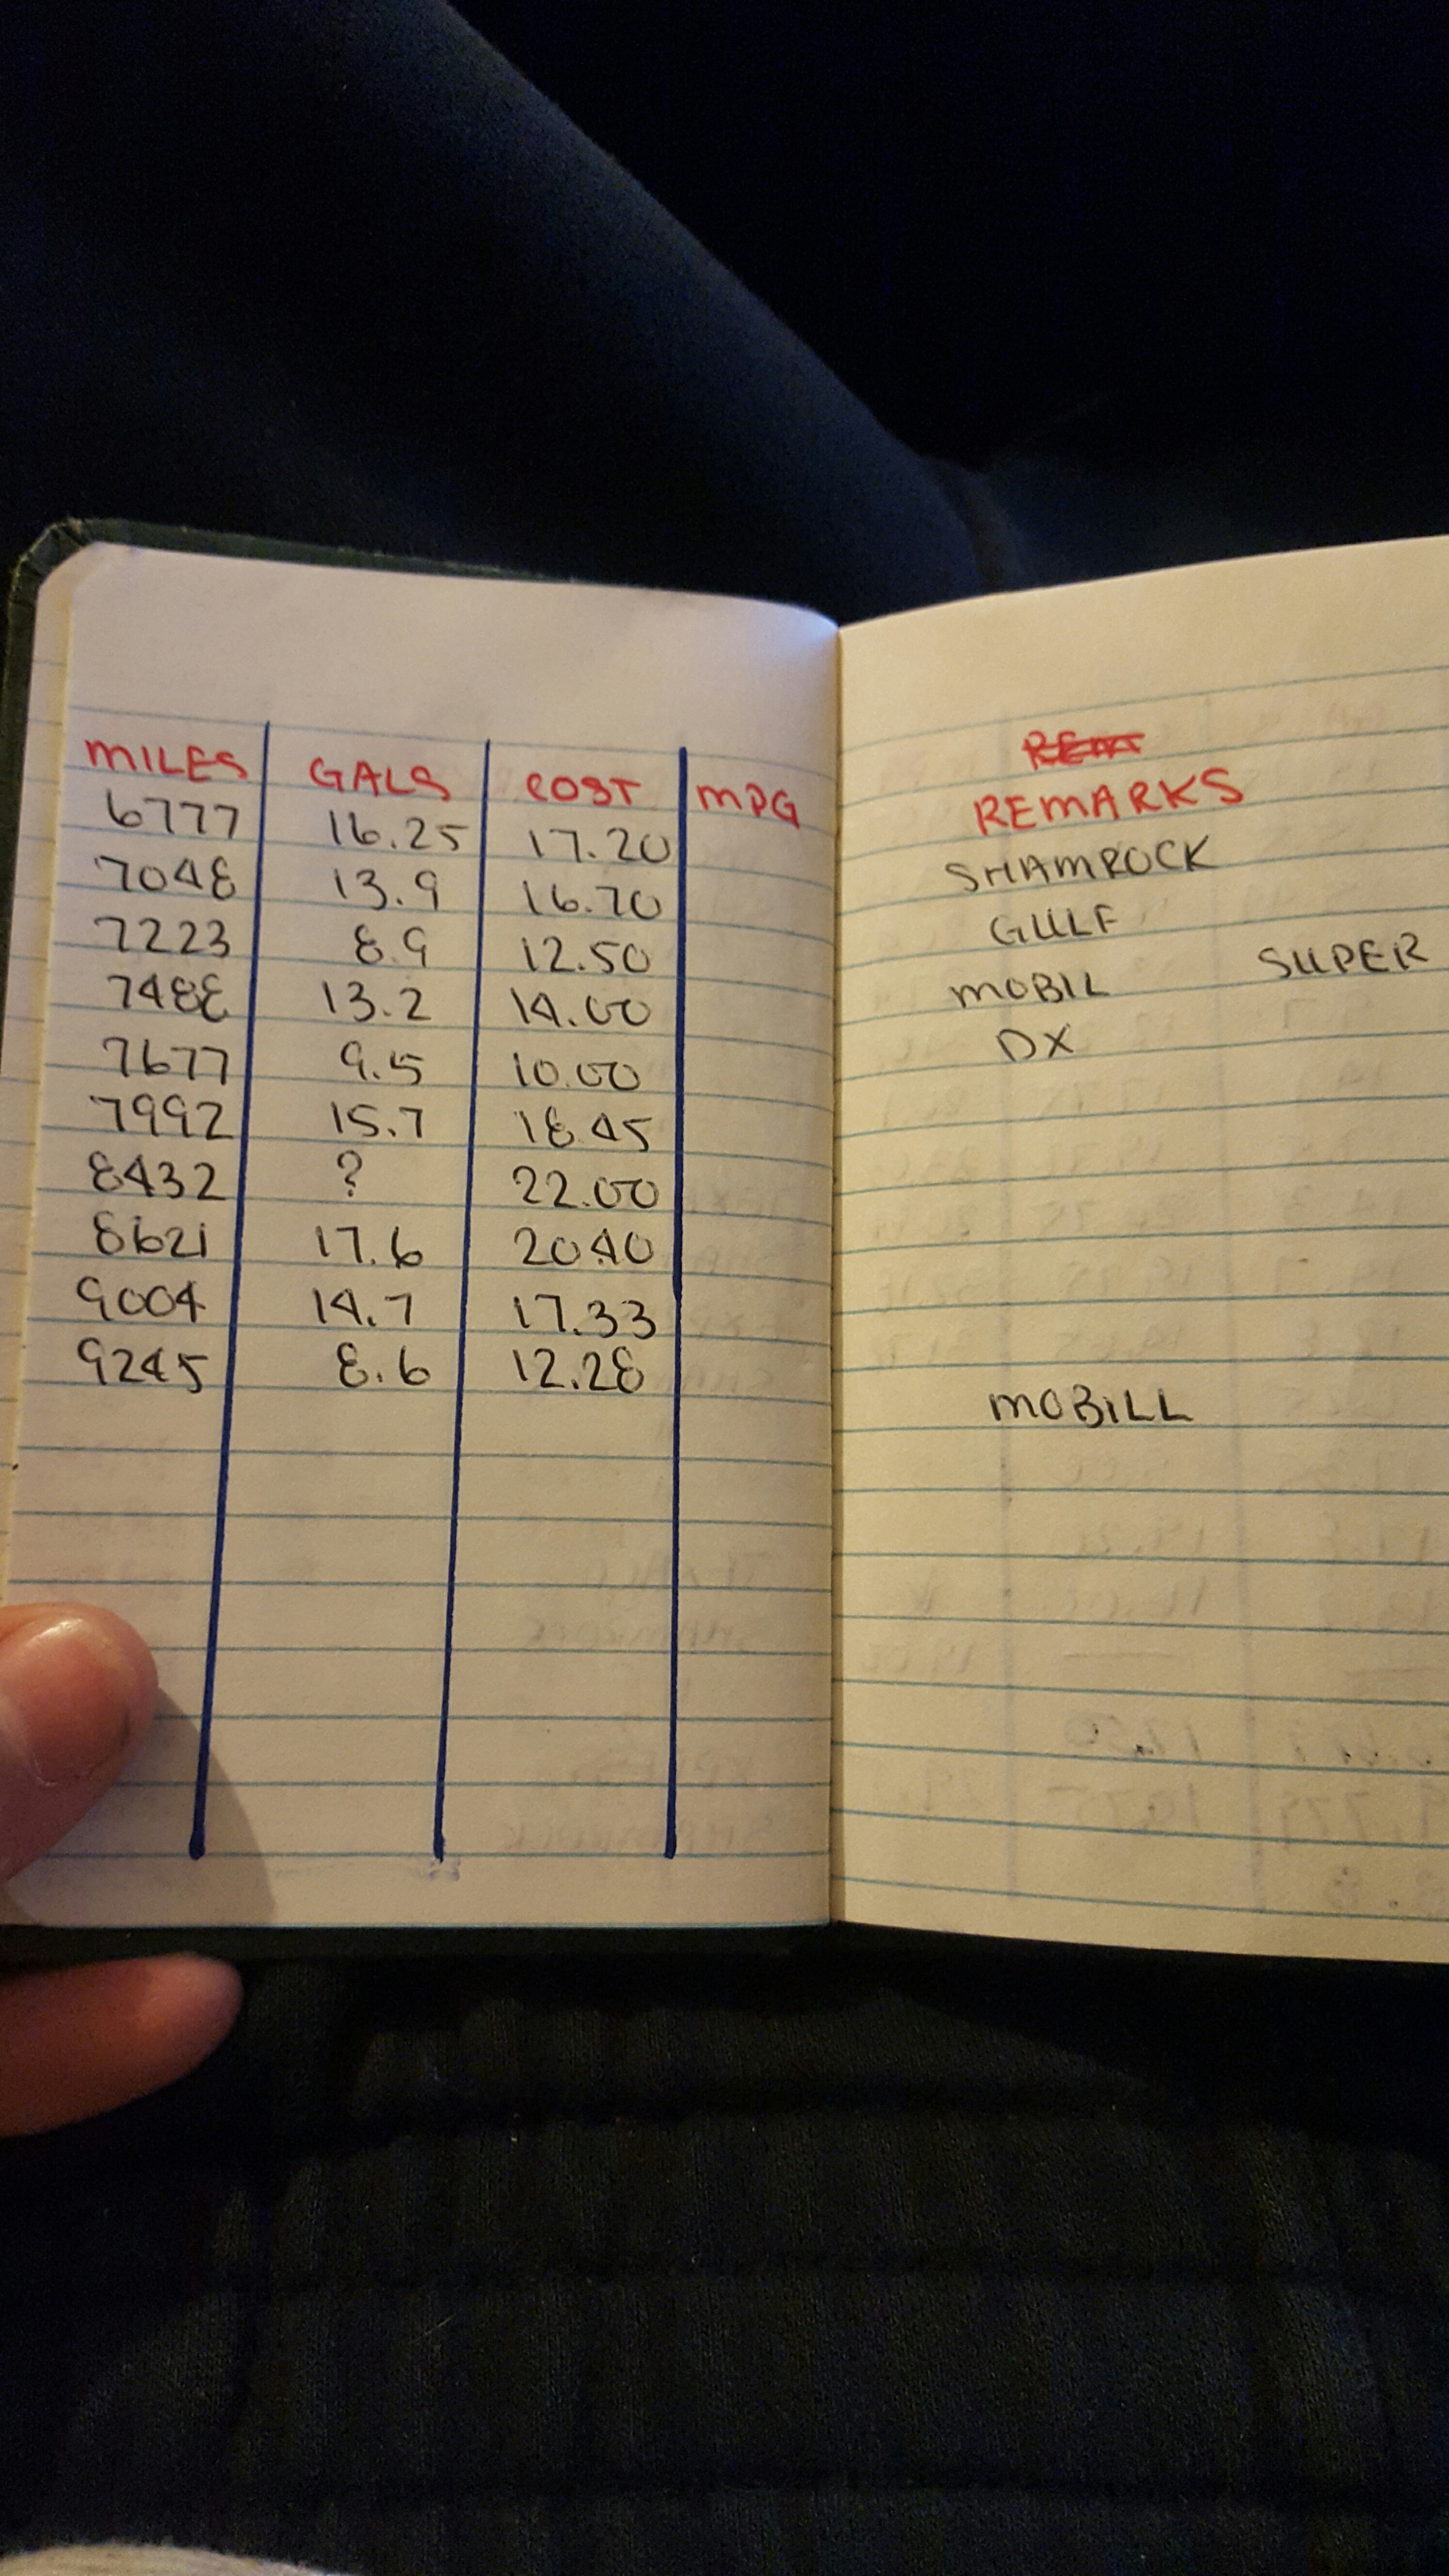 MILES GALS COST MPG
6777 16.25 17.20
7048 13.9 16.70
7223 8.9 12.50
7488 13.2 14.00
7677 9.5 10.00
7992 15.7 18.45
8432 ? 22.00
8621 17.6 20.40
9004 14.7 17.33
9245 8.6 12.28
REMARKS
SHAMROCK
GULF
MOBIL SUPER
DX
MOBILL